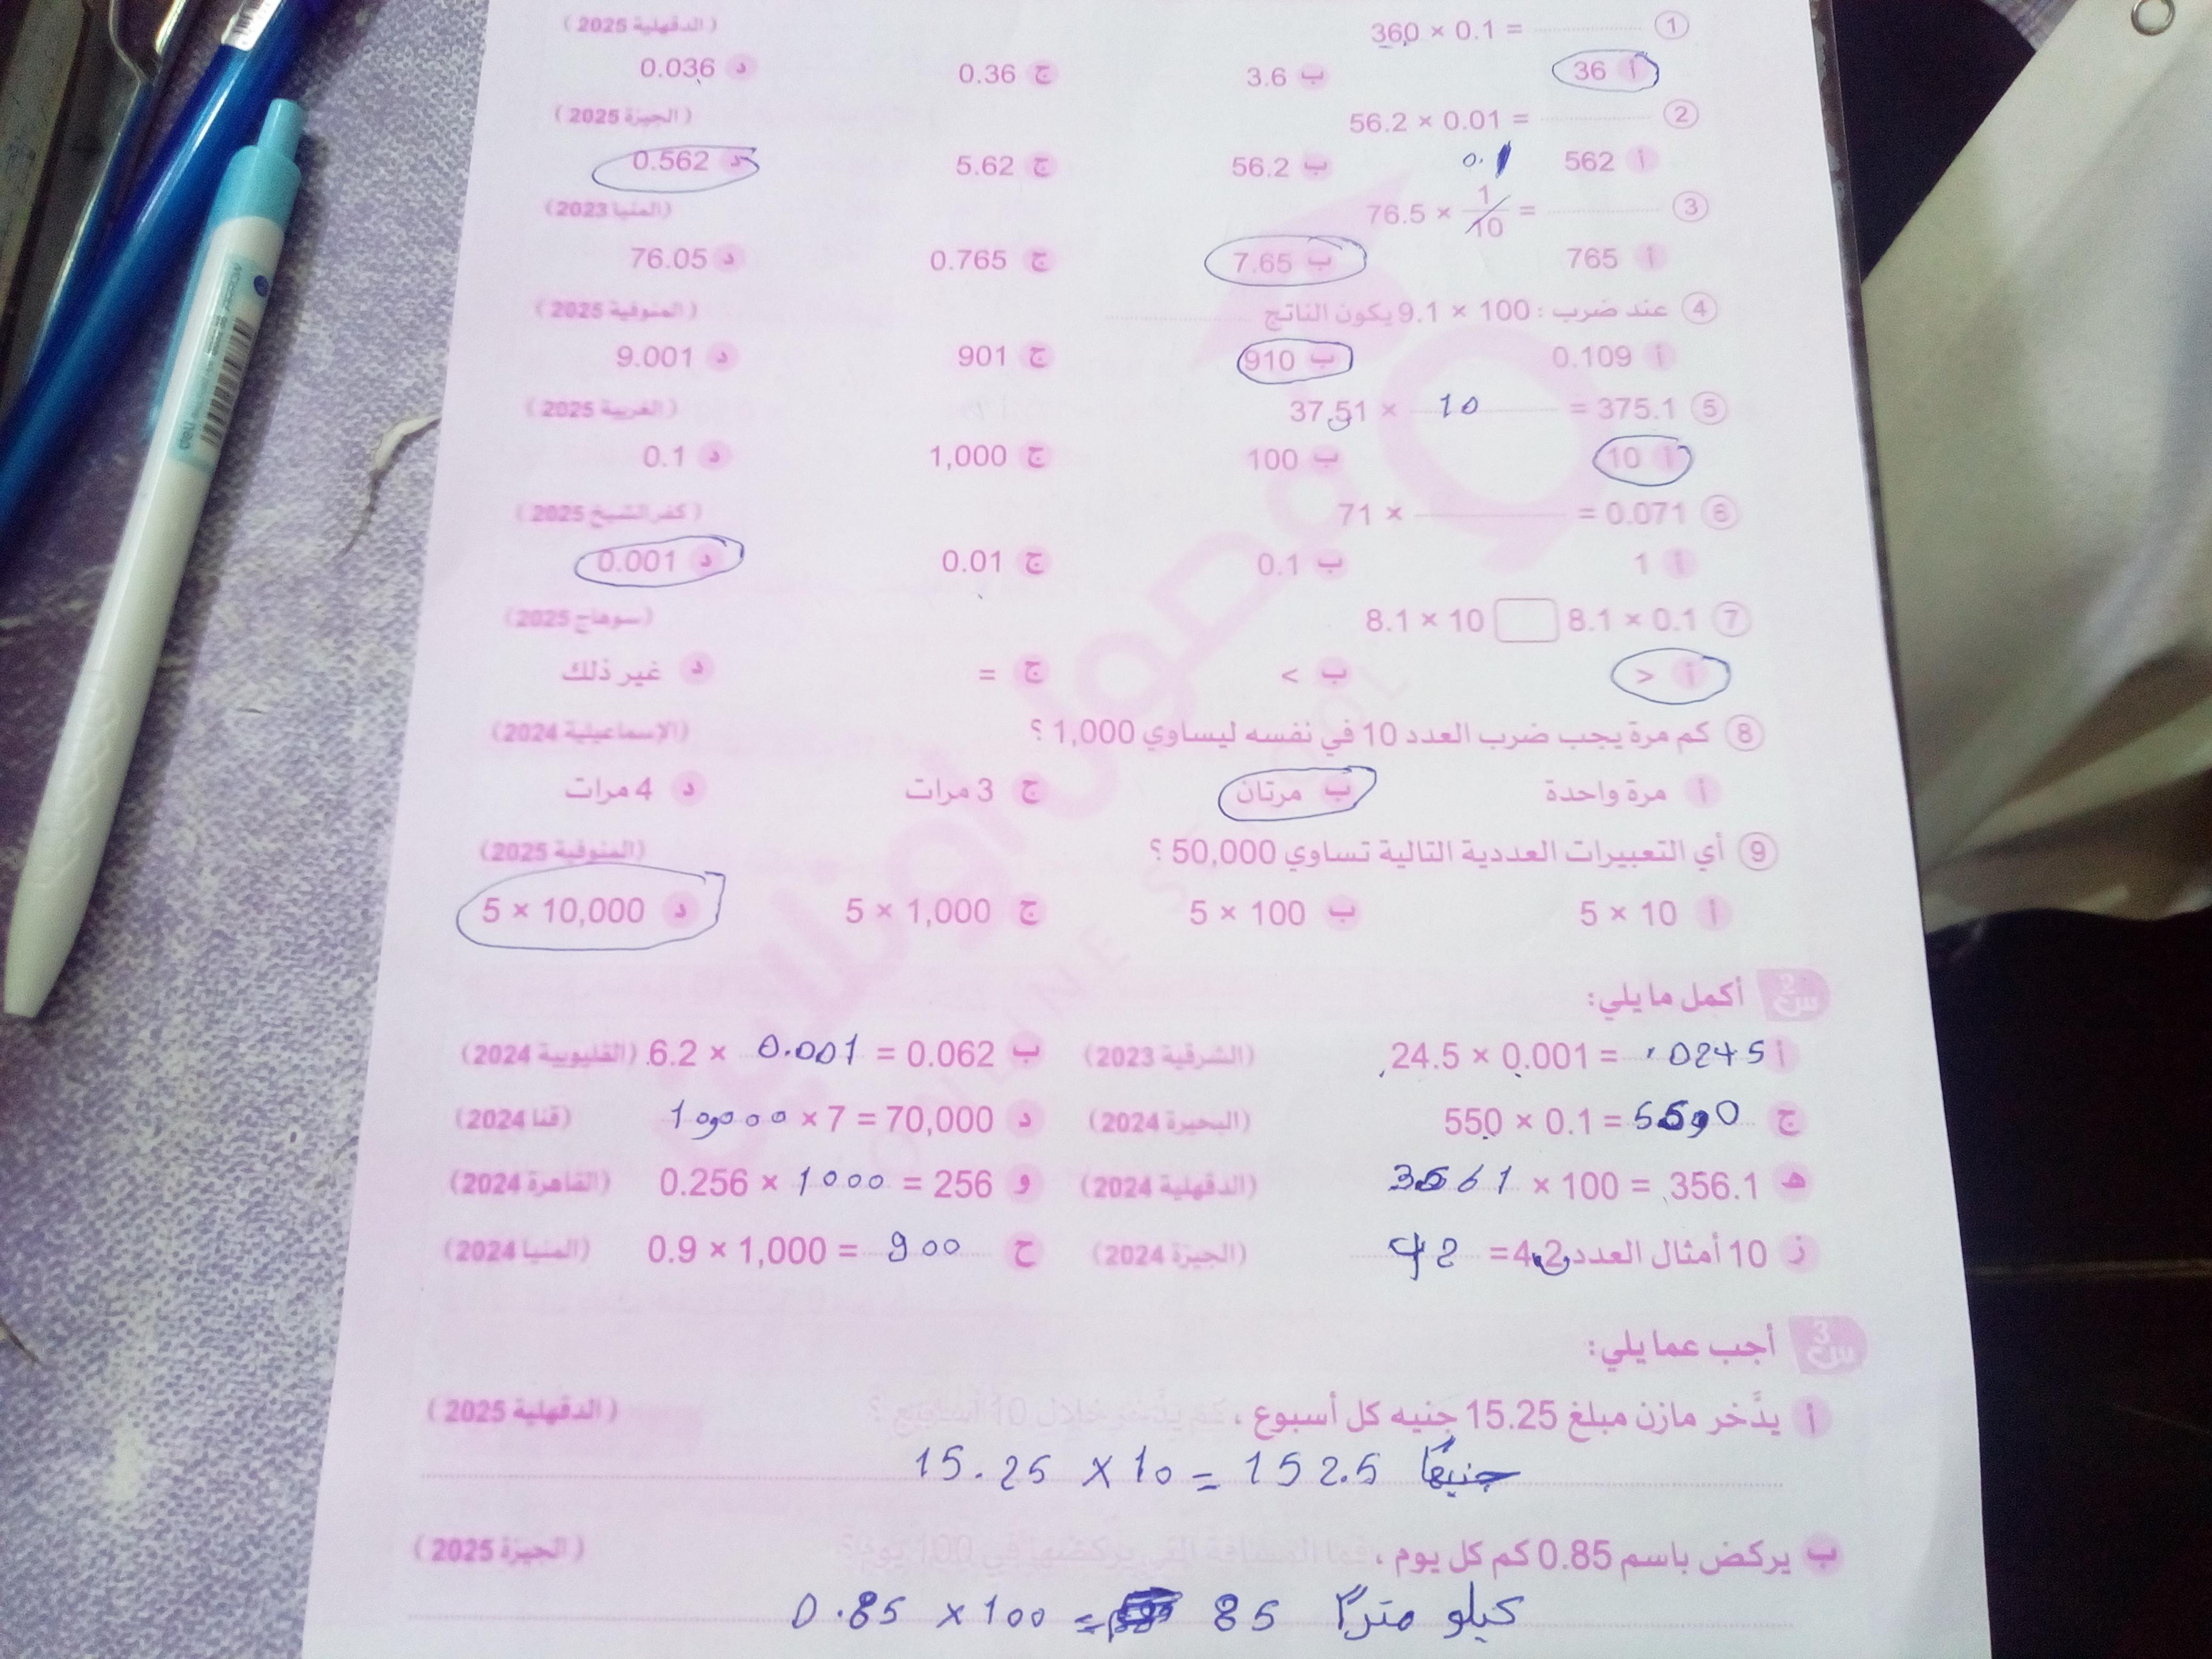 ① 360 × 0.1 = ............ (الدقهلية 2025)
أ 36 ب 3.6 ج 0.36 د 0.036
② 56.2 × 0.01 = ............ (الجيزة 2025)
أ 562 0.1 ب 56.2 ج 5.62 د 0.562
③ 76.5 × 1/10 = ............ (المنيا 2023)
أ 765 ب 7.65 ج 0.765 د 76.05
④ عند ضرب : 100 × 9.1 يكون الناتج ............ (المنوفية 2025)
أ 0.109 ب 910 ج 901 د 9.001
⑤ 37.51 × 10 = 375.1 (الغربية 2025)
أ 10 ب 100 ج 1,000 د 0.1
⑥ 71 × ............ = 0.071 (كفر الشيخ 2025)
أ 1 ب 0.1 ج 0.01 د 0.001
⑦ 8.1 × 10 □ 8.1 × 0.1 (سوهاج 2025)
أ > ب < ج = د غير ذلك
⑧ كم مرة يجب ضرب العدد 10 في نفسه ليساوي 1,000 ؟ (الإسماعيلية 2024)
أ مرة واحدة ب مرتان ج 3 مرات د 4 مرات
⑨ أي التعبيرات العددية التالية تساوي 50,000 ؟ (المنوفية 2025)
أ 5 × 10 ب 5 × 100 ج 5 × 1,000 د 5 × 10,000
س2 أكمل ما يلي:
أ 24.5 × 0.001 = .0245 (الشرقية 2023) ب 6.2 × 0.001 = 0.062 (القليوبية 2024)
ج 550 × 0.1 = (البحيرة 2024) د 10000 × 7 = 70,000 (قنا 2024)
ه 3561 × 100 = 356.1 (الدقهلية 2024) و 0.256 × 1000 = 256 (القاهرة 2024)
ز 10 أمثال العدد 4.2 = 42 (الجيزة 2024) ح 0.9 × 1,000 = 900 (المنيا 2024)
س3 أجب عما يلي:
أ يدَّخر مازن مبلغ 15.25 جنيه كل أسبوع ، كم يدَّخر خلال 10 أسابيع ؟ (الدقهلية 2025)
15.25 × 10 = 152.5 جنيهًا
ب يركض باسم 0.85 كم كل يوم ، فما المسافة التي يركضها في 100 يوم ؟ (الجيزة 2025)
0.85 × 100 = 85 كيلو مترًا